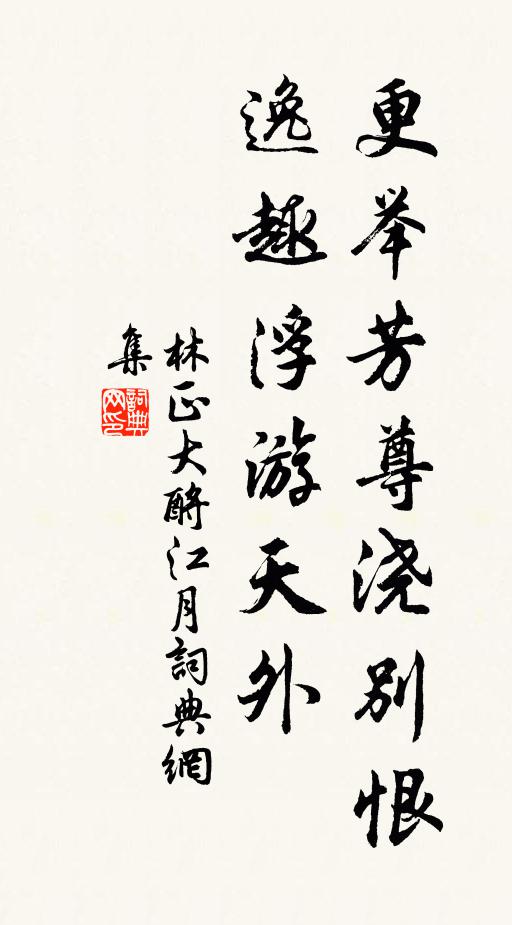 更举芳尊浇别恨
逸趣浮游天外
林正大酹江月詞典網
集
詞典
网印